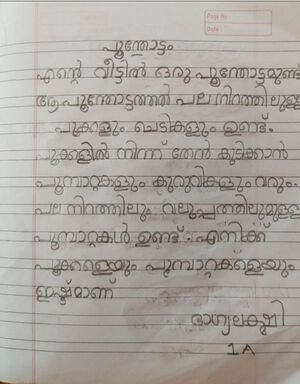 Page No :
Date :
പൂന്തോട്ടം
എൻ്റെ വീട്ടിൽ ഒരു പൂന്തോട്ടമുണ്ട്
ആ പൂന്തോട്ടത്തൽ പല നിറത്തിലുള്ള
പൂക്കളും ചെടികളും ഉണ്ട്.
പൂക്കളിൽ നിന്ന് തേൻ കുടിക്കാൻ
പൂമ്പാറ്റകളും കുറുവികളും വരും.
പല നിറത്തിലും വലുപ്പത്തിലുമുള്ള
പൂമ്പാറ്റകൾ ഉണ്ട്. എനിക്ക്
പൂക്കളെയും പൂമ്പാറ്റകളെയും
ഇഷ്ടമാണ്
ഭാഗ്യലക്ഷ്മി
1 A